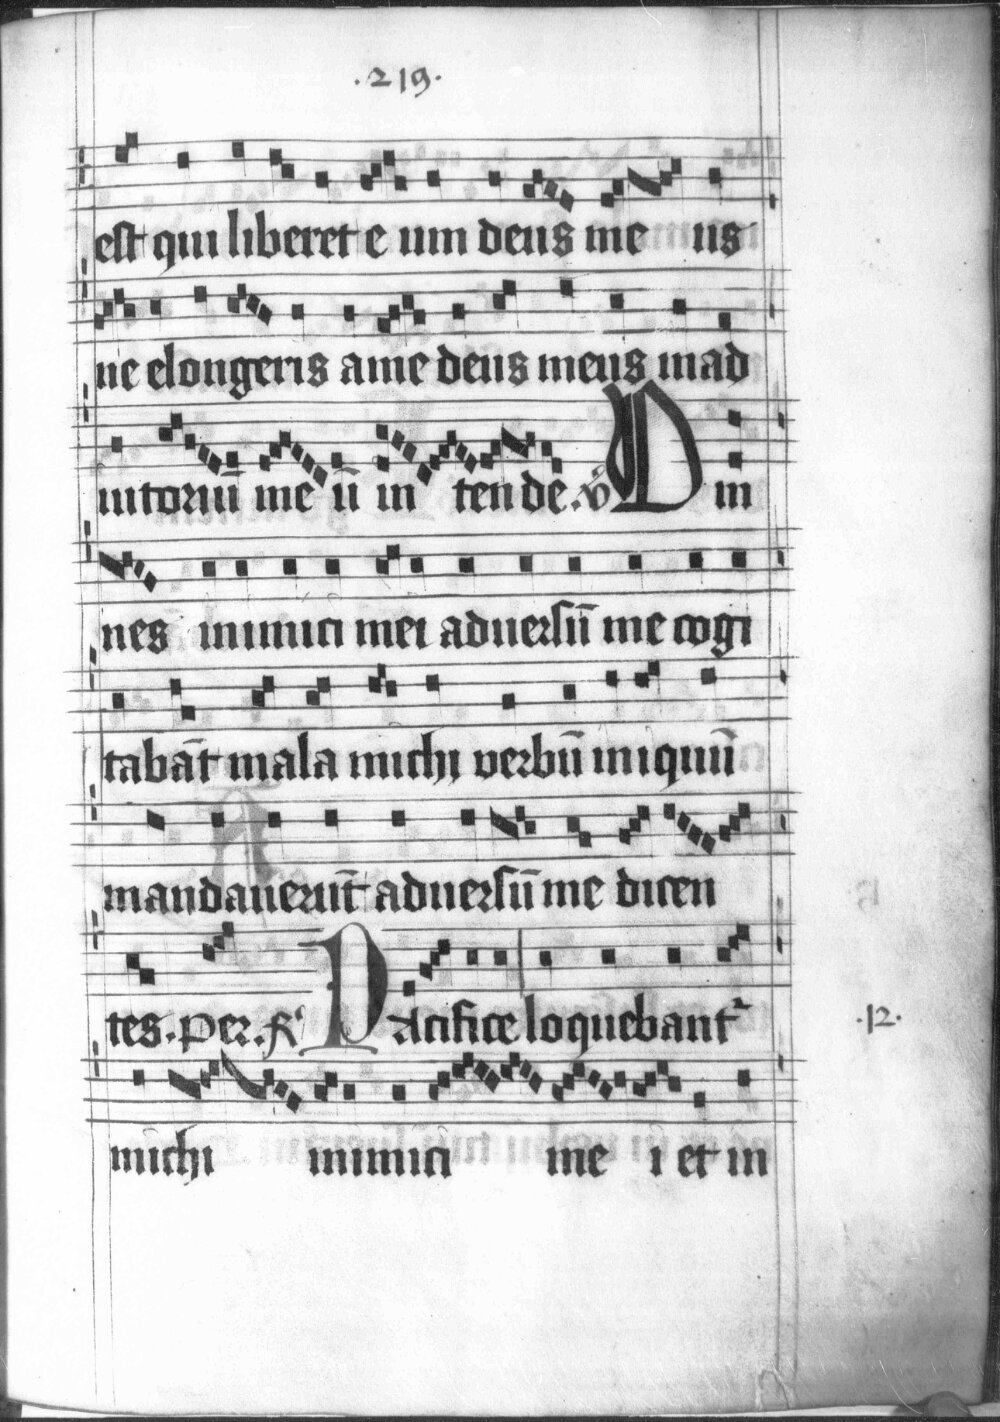 .219.
est qui liberet e um deus me us
ne elongeris a me deus meus in ad
iutoriū me ū in ten de .v̄ D in
nes inimici mei aduersū me cogi
tabāt mala michi verbū iniquū
mandauerūt aduersū me dicen
tes . per . R̄ Pacifice loquebant᷑
.12.
michi inimici me i et in